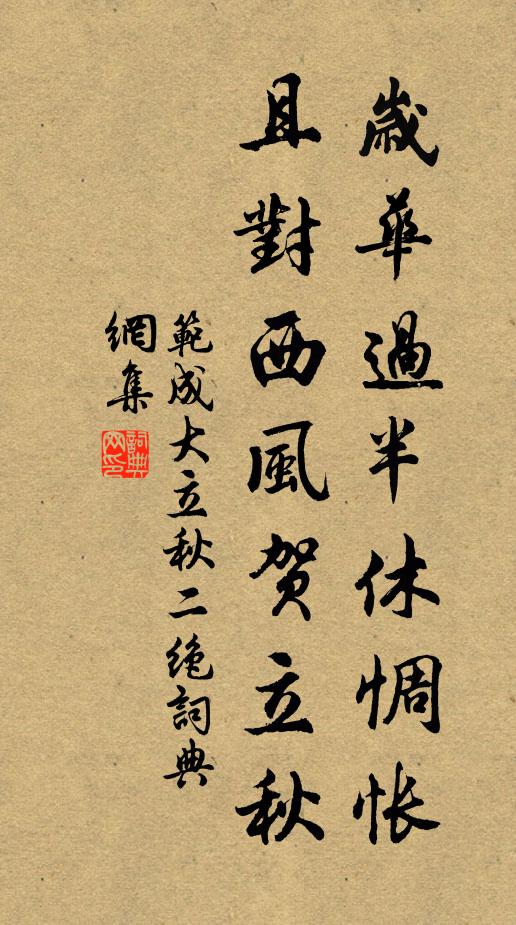 歲華過半休惆悵
且對西風贺立秋
範成大立秋二绝詞典
網集
詞典
网印